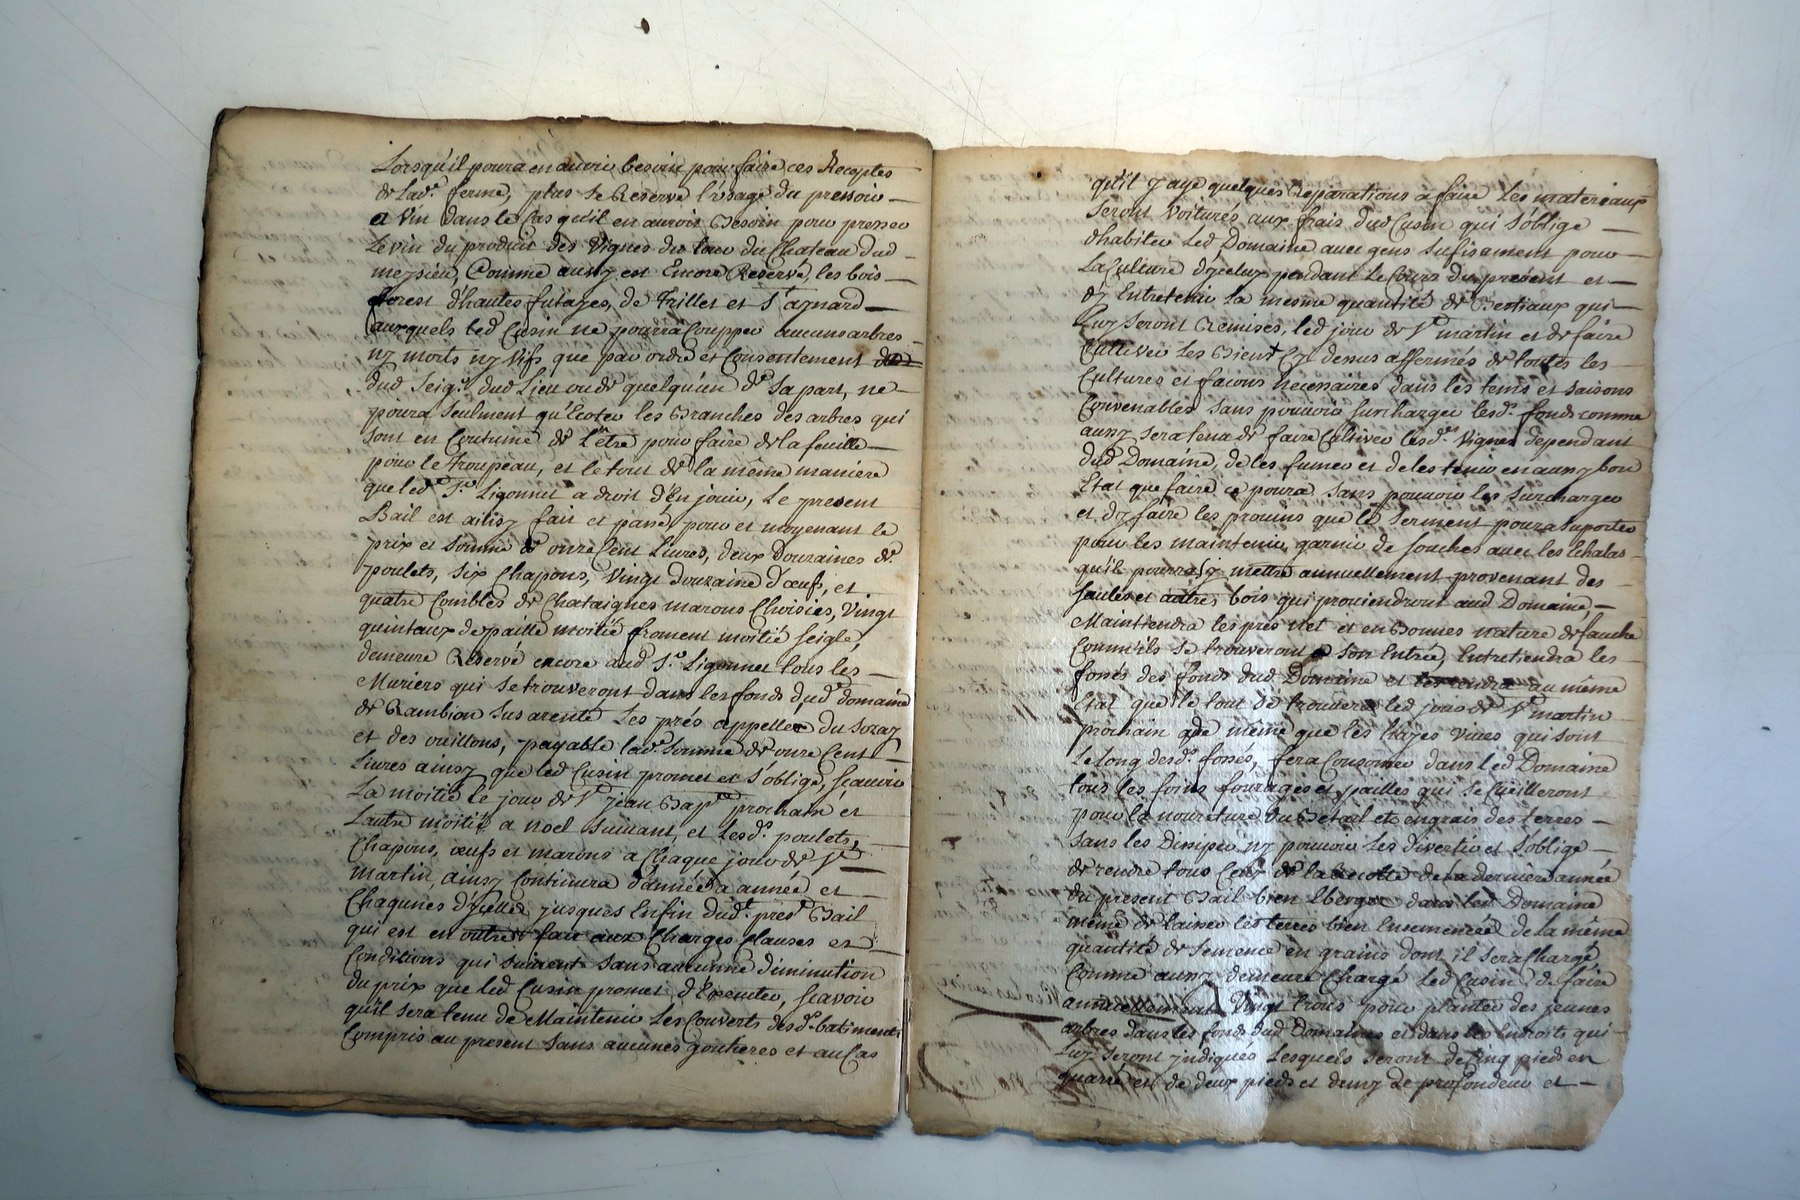 Lorsqu'il poura en avoir besoin pour faire ces Receptes
de lad.e ferme, plus se Reserve l'usage du pressoir
a vin dans le cas qu'il en auroit Besoin pour presser
le vin du produit des vignes du tour du Chateau dud
meysieu, Comme aussy est Encore Reservé, les bois
forest d'hautes futayes, de Trillet et St aynard
auxquels led Cusin ne pourra Coupper aucuns arbres
ny morts ny vifs que par ordre et Consentement
dud Seigr dud Lieu ou de quelqu'un de Sa part, ne
poura Seulment qu'Ecoter les Branches des arbres qui
sont en Coutume de l'être pour faire de la feuille
pour le Troupeau, et le tout de la même maniere
que led Sr Ligonnet a droit d'En jouir, Le present
Bail est ainsy fait et passé pour et moyenant le
prix et Somme de onze Cent Livres, deux Douzaines de
poulets, Six Chapons, Vingt douzaine d'œufs, et
quatre Combles de Chataignes marons Choisies, Vingt
quintaux de paille moitié froment moitié seigle,
demeure Reservé encore aud Sr Ligonnet tous les
Muriers qui se trouveront dans les fonds dud domaine
de Rambion sus arenté Les prés appellez du Sozay
et des ouillons, payable lad Somme de onze Cent
Livres ainsy que led Cusin promet et s'oblige, Scavoir
La moitié le jour de St jean Bapte prochain et
Lautre moitié a noel suivant, et lesd. poulets,
Chapons, œufs et marons a Chaque jour de St
martin, ainsy Continura d'année a année et
Chaqunes d'ycelles jusques Enfin dud. prest Bail
qui est en outre fait aux Charges Clauses et
Conditions qui suivent sans aucunne diminution
du prix que led Cusin promet d'Executer, Scavoir
qu'il sera tenu de Maintenir Les Couverts desd. batiments
Compris au present sans aucunes goutieres et au Cas
qu'il y aye quelques Reparations a faire Les materiaux
seront Voiturés aux frais dud Cusin qui s'oblige
d'habiter Led Domaine avec gens sufisament pour
La Culture d'yceluy pendant le Cours du present et
d'y Entretenir la mesme quantité de Bestiaux qui
Luy seront Remises, led jour de St martin et de faire
Cultiver les Biens Cy dessus affermés de toutes les
Cultures et facons necessaires dans les tems et saisons
Convenables sans pouvoir surcharger lesd. fonds comme
aussy sera tenu de faire Cultiver lesd. Vignes dependant
dud Domaine, de les fumer et de les tenir en aussy bon
Etat que faire ce poura sans pouvoir les surcharger
et d'y faire les provins que le Serment poura suporter
pour les maintenir garnir de souches avec les Echalas
qu'il pourra y mettre annuellement provenant des
saules et autres bois qui proviendront aud Domaine,
Maintiendra les prés Net et en Bonnes nature de fauche
Comm'ils se trouveront a Son Entrée, Entretiendra les
fossés des fonds dud Domaine et les rendra au même
Etat que le tout se trouvera led jour de St martin
prochain de même que les hayes vives qui sont
Le Long desd. fossés, fera Consomer dans led Domaine
tous les foins fourages et pailles qui se Cüeilleront
pour la nouriture du Betail et engrais des terres
sans les Dissiper ny pouvoir Les divertir et s'oblige
de rendre tous Ceux de la Recolte de la derniere année
du present Bail bien Eberger dans led Domaine
même de laisser les terres bien Ensemencée de la même
quantité de semence en grains dont il sera Chargé
Comme aussy demeure Chargé Led Cusin de faire
annuellement Vingt trous pour planter des jeunes
arbres dans les fonds dud Domaines et dans les Endroits qui
Luy seront yndiqués Lesquels seront de Cinq pieds en
quarré et de deux pieds et demy de profondeur et